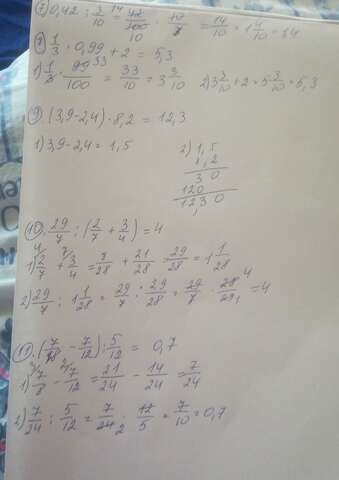 7) 0,42 : 3/10 = 42/100 · 10/3 = 14/10 = 1 4/10 = 1,4
8) 1/3 · 0,99 + 2 = 5,3
1) 1/3 · 99/100 = 33/10 = 3 3/10  2) 3 3/10 + 2 = 5 3/10 = 5,3
9) (3,9-2,4) · 8,2 = 12,3
1) 3,9-2,4 = 1,5  2) 1,5
8,2
30
120
12,30
10) 29/7 : (2/7 + 3/4) = 4
1) 2/7 + 3/4 = 8/28 + 21/28 = 29/28 = 1 1/28
2) 29/7 : 1 1/28 = 29/7 : 29/28 = 29/7 · 28/29 = 4
11) (7/8 - 7/12) : 5/12 = 0,7
1) 7/8 - 7/12 = 21/24 - 14/24 = 7/24
2) 7/24 : 5/12 = 7/24 · 12/5 = 7/10 = 0,7